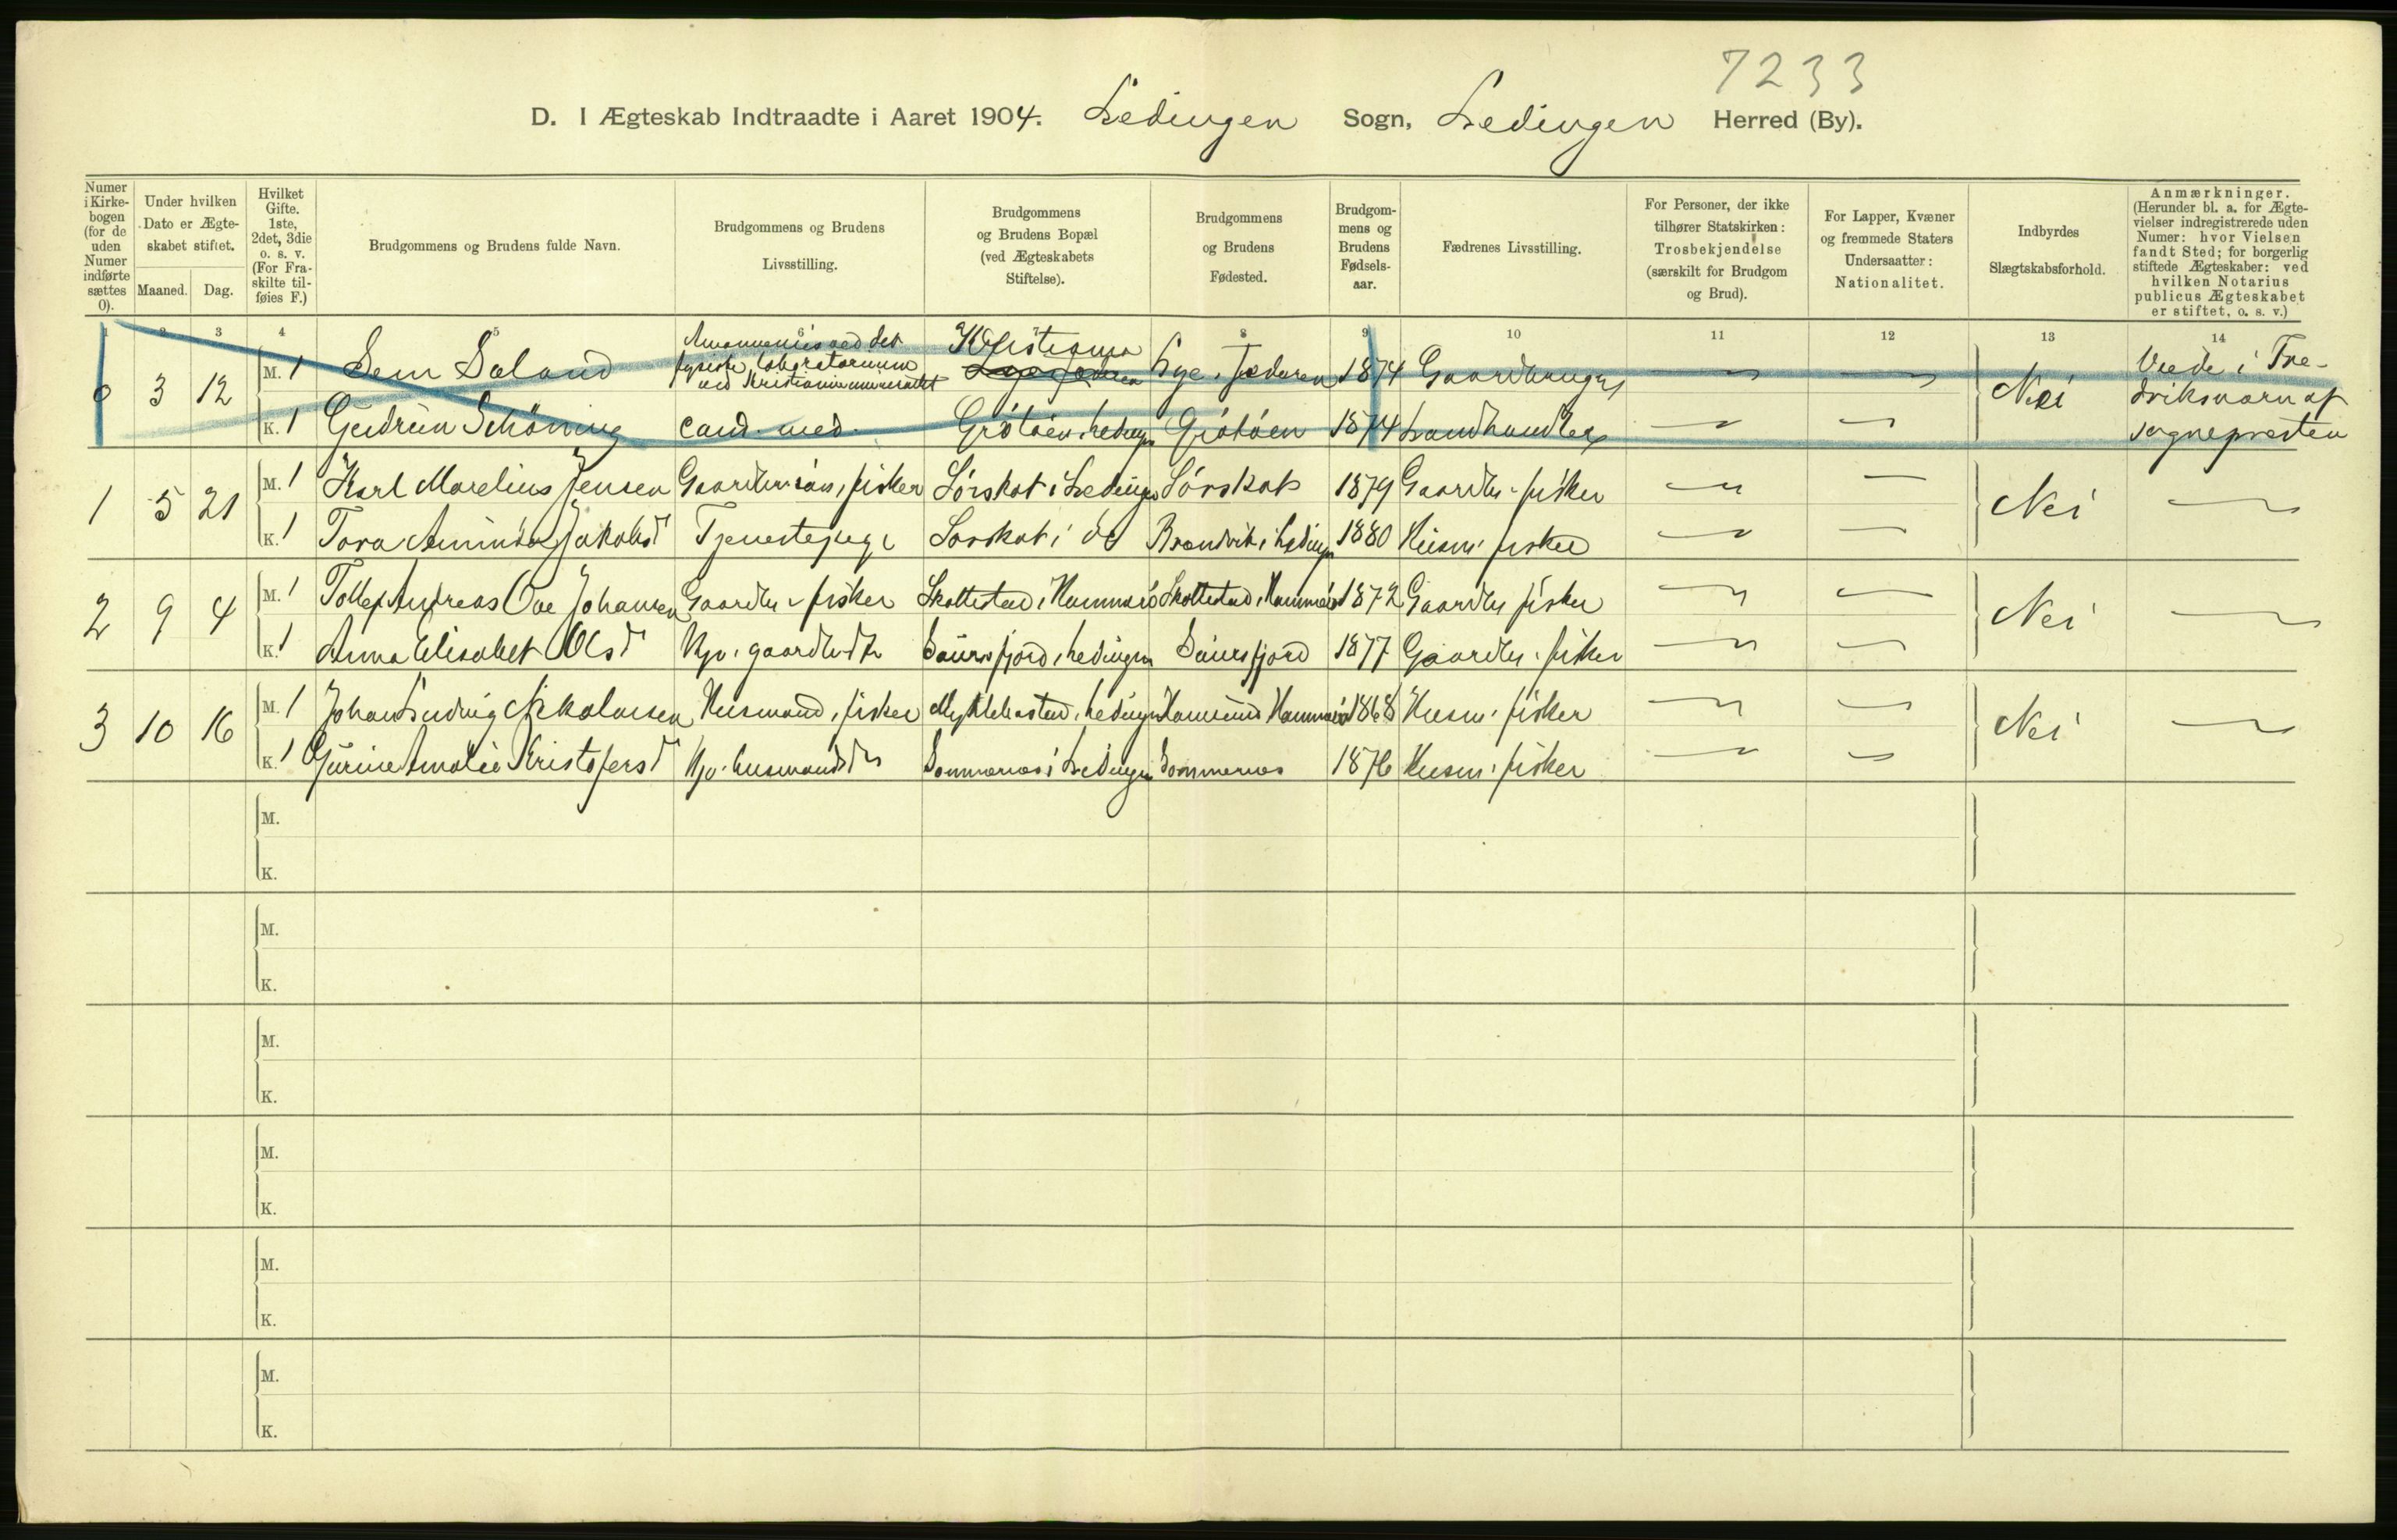 7233
D. I Ægteskab Indtraadte i Aaret 1904. Lødingen Sogn, Lødingen Herred (By).
Numer i Kirke-bogen (for de uden Numer indførte sættes 0).
Under hvilken Dato er Ægte-skabet stiftet.
Maaned. Dag.
Hvilket Gifte. 1ste, 2det, 3die o. s. v. (For Fra-skilte til-føies F.)
Brudgommens og Brudens fulde Navn.
Brudgommens og Brudens Livsstilling.
Brudgommens og Brudens Bopæl (ved Ægteskabets Stiftelse).
Brudgommens og Brudens Fødested.
Brudgom-mens og Brudens Fødsels-aar.
Fædrenes Livsstilling.
For Personer, der ikke tilhører Statskirken: Trosbekjendelse (særskilt for Brudgom og Brud).
For Lapper, Kvæner og fremmede Staters Undersaatter: Nationalitet.
Indbyrdes Slægtskabsforhold.
Anmærkninger. (Herunder bl. a. for Ægte-vielser indregistrerede uden Numer: hvor Vielsen fandt Sted; for borgerlig stiftede Ægteskaber: ved hvilken Notarius publicus Ægteskabet er stiftet, o. s. v.)
1 2 3 4 5 6 7 8 9 10 11 12 13 14
0 3 12 M. 1 Sem Sæland Amanuensis ved det fysiske laboratorium ved Kristiania universitet Kristiania Lye i Jæderen 1874 Gaardbruger — — Nei Viede i Fre-
K. 1 Gudrun Schöning cand. med. Grötöen i Lödingen Grötöen 1874 Landhandler — — driksværn af
sognepresten
1 5 21 M. 1 Karl Marelius Jensen Gaardbr. sön, fisker Sörskot i Lødingen Sörskot 1879 Gaardbr. fisker — — Nei —
K. 1 Tora Jakobsd Tjenestepige Sörskot i do Brændvik i Lödingen 1880 Husm. fisker — —
2 9 4 M. 1 Tollef Andreas Ove Johansen Gaardbr. fisker Skottestad i Hammarö Skottestad i Hammarö 1872 Gaardbr. fisker — — Nei —
K. 1 Anna Elisabet Olsd Hjv. gaardbrdtr Saursfjord i Lödingen Saursfjord 1877 Gaardbr. fisker — —
3 10 16 M. 1 Johan Ludvig Nikolaisen Husmand, fisker Myklebostad i Lödingen Hamsund Hammarö 1868 Husm. fisker — — Nei —
K. 1 Gurine Amalie Kristofersd Hjv. husmandsdtr Sommernes i Lødingen Sommernes 1876 Husm. fisker — —
M.
K.
M.
K.
M.
K.
M.
K.
M.
K.
M.
K.